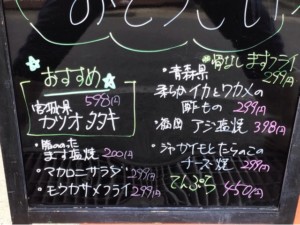 おすすめ
宮城県 598円
カツオタタキ
脂ののった
ます塩焼 200円
・マカロニサラダ 299円
・モウカサメフライ 299円
・青森県 骨なしますフライ 299円
柔らかイカとワカメの
酢もの 299円
・福岡 アジ塩焼 398円
・ジャガイモとたらこの
チーズ焼 299円
てんぷら 450円